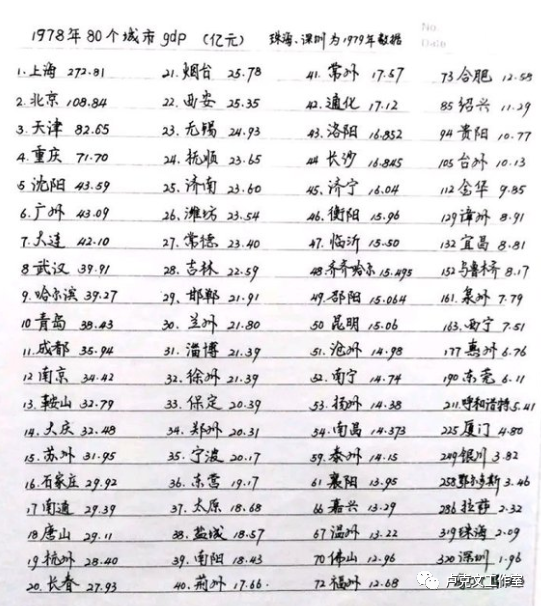 1978年80个城市gdp (亿元) 珠海、深圳为1979年数据
No
Date
1. 上海 272.81
2. 北京 108.84
3. 天津 82.65
4. 重庆 71.70
5 沈阳 43.59
6. 广州 43.09
7. 大连 42.10
8 武汉 39.91
9. 哈尔滨 39.27
10 青岛 38.43
11. 成都 35.94
12 南京 34.42
13. 鞍山 32.79
14. 大庆 32.48
15. 苏州 31.95
16. 石家庄 29.92
17 南通 29.39
18 唐山 29.11
19 杭州 28.40
20. 长春 27.93
21. 烟台 25.78
22. 西安 25.35
23. 无锡 24.93
24. 抚顺 23.65
25. 济南 23.60
26. 潍坊 23.54
27. 常德 23.40
28. 吉林 22.59
29. 邯郸 21.91
30. 兰州 21.80
31. 淄博 21.39
32. 徐州 21.39
33. 保定 20.39
34. 郑州 20.31
35. 宁波 20.17
36. 东营 19.17
37. 太原 18.68
38. 盐城 18.57
39. 南阳 18.43
40. 荆州 17.66.
41. 常州 17.57
42. 通化 17.12
43. 洛阳 16.852
44 长沙 16.845
45. 济宁 16.04
46. 衡阳 15.96
47. 临沂 15.50
48 齐齐哈尔 15.495
49. 邵阳 15.064
50 昆明 15.06
51. 沧州 14.98
52. 南宁 14.74
53. 扬州 14.38
54. 南昌 14.373
59. 泰州 14.15
61 襄阳 13.95
66 嘉兴 13.29
67 温州 13.22
70 佛山 12.96
72 福州 12.68
73 合肥 12.58
85 绍兴 11.29
94 贵阳 10.77
105 台州 10.13
112 金华 9.85
129 漳州 8.91
132 宜昌 8.81
152 乌鲁木齐 8.17
161. 泉州 7.79
163. 西宁 7.51
177 惠州 6.76
190 东莞 6.11
211 呼和浩特 5.41
225 厦门 4.80
249 银川 3.82
258 鄂尔多斯 3.46
286 拉萨 2.32
319 珠海 2.09
320 深圳 1.96
卢克文工作室